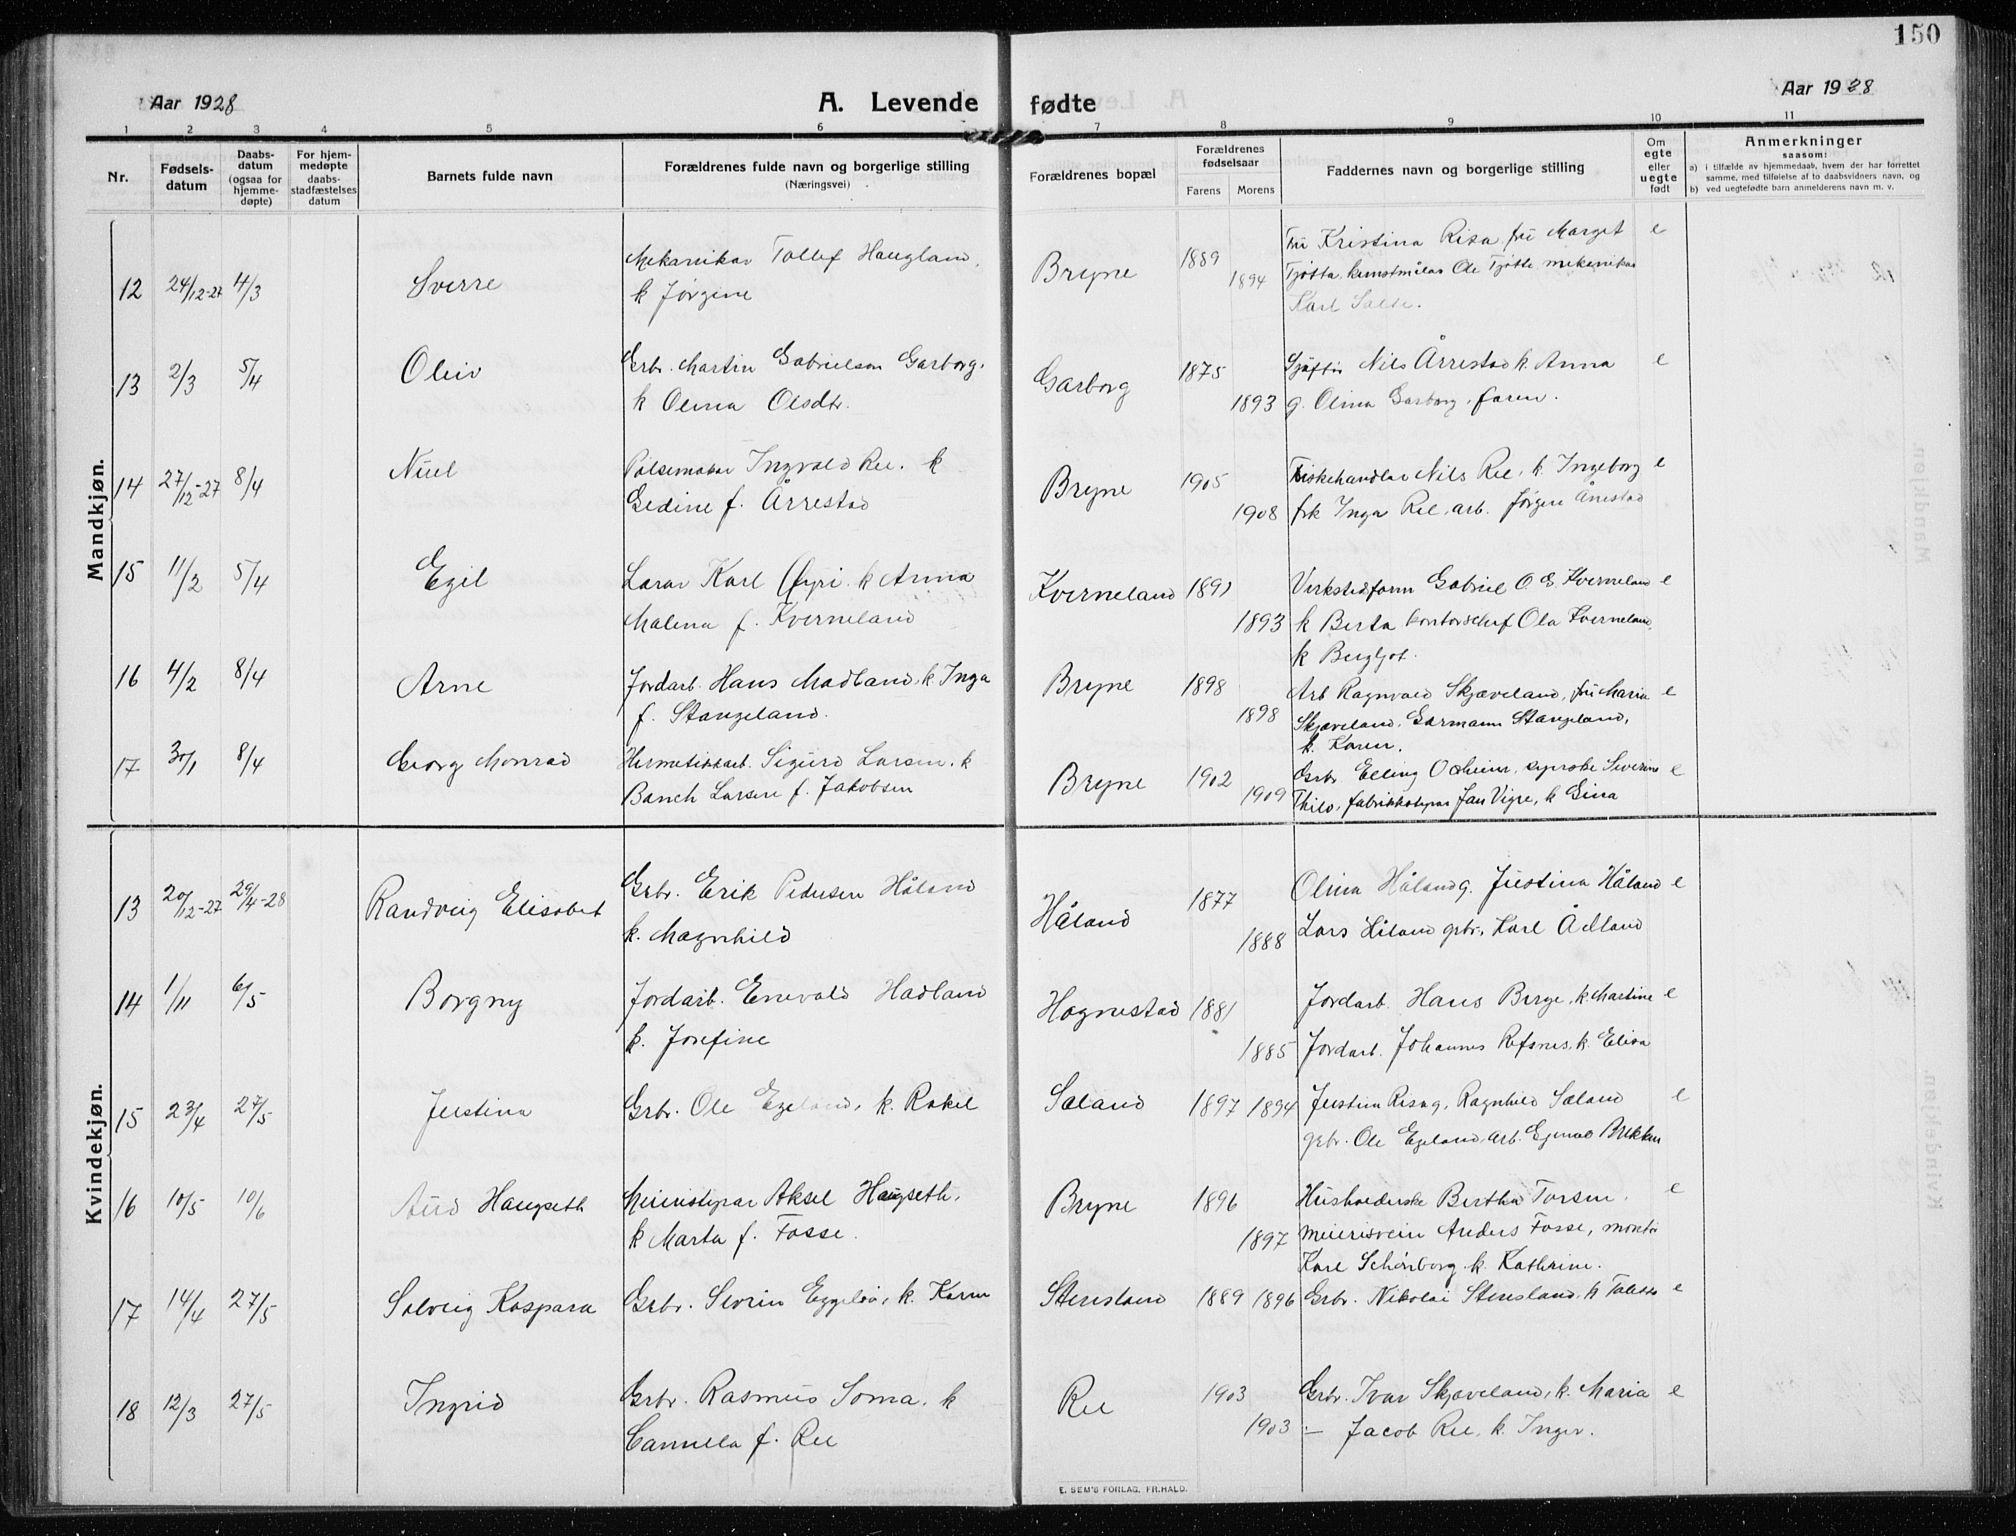 150
Aar 1928
A. Levende fødte
Aar 1928
1 2 3 4 5 6 7 8 9 10 11
Nr.
Fødsels-
datum
Daabs-
datum
(ogsaa for
hjemme-
døpte)
For hjem-
medøpte
daabs-
stadfæstelses
datum
Barnets fulde navn
Forældrenes fulde navn og borgerlige stilling
(Næringsvei)
Forældrenes bopæl
Forældrenes
fødselsaar
Farens Morens
Faddernes navn og borgerlige stilling
Om
egte
eller
uegte
født
Anmerkninger
saasom:
a) i tilfælde av hjemmedaab, hvem der har forrettet
samme, med tilføielse af to daabsvidners navn, og
b) ved uegtefødte barn anmelderens navn m. v.
Mandkjøn.
12 24/12-27 4/3 Sverre Mekanikar Tollef Haugland, Bryne 1889 Fru Kristina Risa, fru Marget e
k Jørgine 1894 Tjøtta, kunstmåler Ole Tjøtta mekanikar
Karl Salte.
13 2/3 5/4 Oliv Grbr. Martin Gabrielsen Garborg, Garborg 1875 Nils Årrestad k. Anna e
k Olina Olsdtr. 1893 g. Olina Garborg, faren.
14 27/12-27 8/4 Pølsemakar Ingvald Ree. k Bryne 1905 Fiskehandlar Nils Ree, k. Ingeborg e
Gedine f. Årrestad 1908 frk Inga Ree, arb. Jørgen Årrestad
15 11/2 5/4 Egil Lærar Karl Øyri k Anna Kverneland 1891 Verkstedform Gabriel O. E. Kverneland e
Malena f. Kverneland 1893 k Berta kontorschef Ola Kverneland,
k Bergljot.
16 4/2 8/4 Arne Jordarb. Hans Madland, k. Inga Bryne 1898 Arb Ragnvald Skjæveland, fru Maria e
f. Stangeland. 1898 Skjæveland, Garmann Stangeland,
k. Karen.
17 30/1 8/4 Georg Monrad Hermetikkarb. Sigurd Larsen, k Bryne 1902 Grbr Elling syerske Severine e
Larsen f. Jakobsen 1909 Thilo, fabrikkstyrar Jan Vigre, k Gina
Kvindekjøn.
13 20/12-27 29/4-28 Randveig Elisabet Grbr. Erik Pedersen Håland Håland 1877 Olina Håland g. Justina Håland e
k. Magnhild 1888 Lars Håland grbr, Karl Ådland
14 1/11 6/5 Borgny Jordarb. Enevald Hadland Hognestad 1881 Jordarb. Hans Berge, k Martine e
k. Josefine 1885 Jordarb. Johannes Refsnes, k. Elisa
15 23/4 27/5 Justina Grbr. Ole Egeland, k. Rakel Sæland 1897 1894 Justina Risa g, Ragnhild Sæland e
grbr. Ole Egeland, arb. Brekken
16 10/5 10/6 Aud Haugseth Meieristyrar Aksel Haugseth, Bryne 1896 Husholderske Bertha Torsen. e
k Marta f. Fosse. 1897 meierisvein Anders Fosse, montør
Karl Schønborg k. Kathrine.
17 14/4 27/5 Solveig Kaspara Grbr. Sevrin k. Karen Stensland 1889 1896 Grbr. Nikolai Stensland, k e
18 12/3 27/5 Ingrid Grbr. Rasmus Soma, k Ree 1903 Grbr. Ivar Skjæveland, k. Maria e
Camilla f. Ree 1903 :— Jacob Ree, k. Inger.
E. SEM'S FORLAG, FR.HALD.